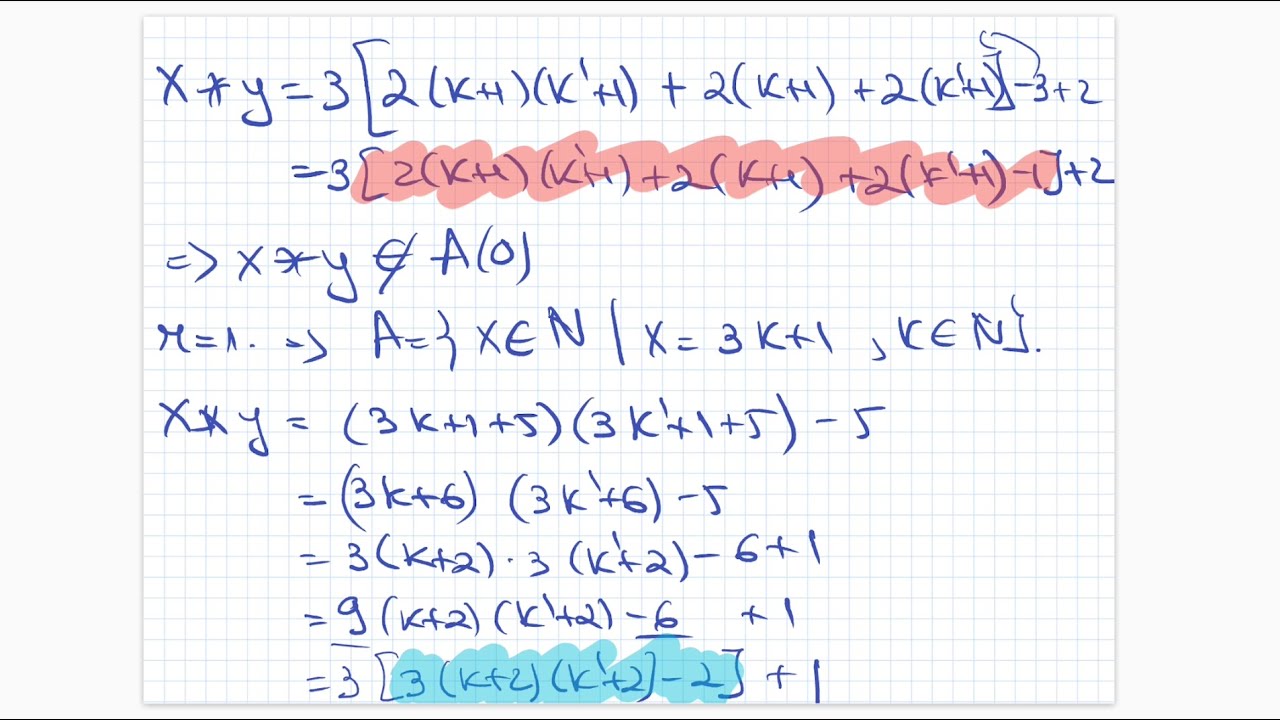 x * y = 3 [2(k+1)(k'+1) + 2(k+1) + 2(k'+1)] - 3 + 2
= 3 [2(k+1)(k'+1) + 2(k+1) + 2(k'+1) - 1] + 2
=> x * y ∉ A(0)
r = 1. => A = { x ∈ N | x = 3k+1 , k ∈ N }.
x * y = (3k+1+5)(3k'+1+5) - 5
= (3k+6) (3k'+6) - 5
= 3(k+2) · 3 (k'+2) - 6 + 1
= 9 (k+2) (k'+2) - 6 + 1
= 3 [3 (k+2) (k'+2] - 2] + 1